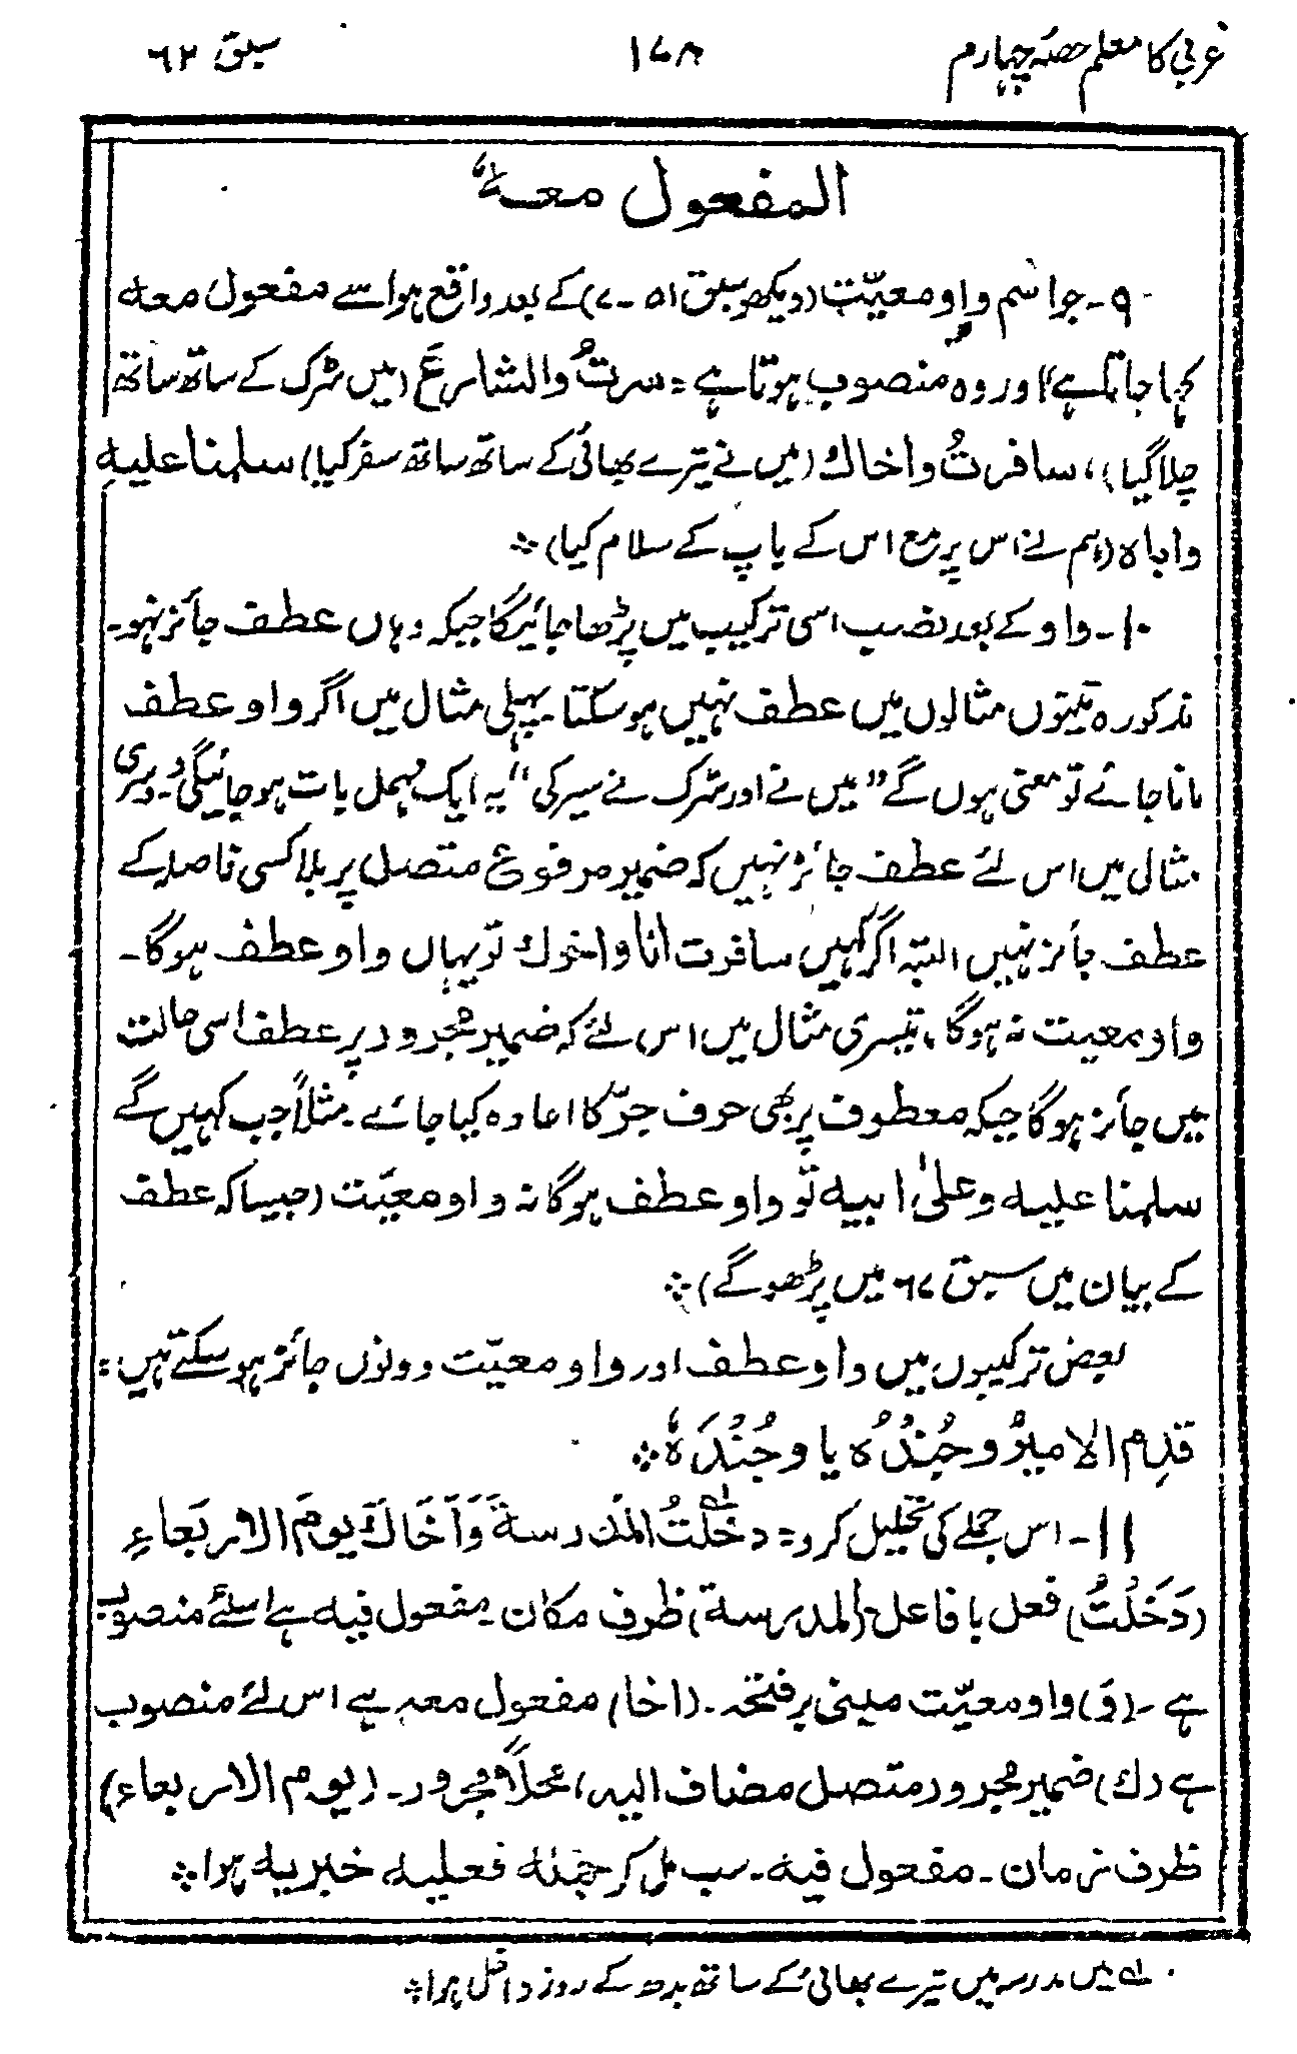 عربی کا معلم حصہ چہارم ۱۷۸ سبق ۶۲
المفعول معہٗ
۹۔ جو اسم واوِ معیّت (دیکھو سبق ۵۱ - ۷) کے بعد واقع ہو اسے مفعول معہ
کہا جاتا ہے اور وہ منصوب ہوتا ہے = سرتُ والشارعَ (میں سڑک کے ساتھ ساتھ
چلا گیا)، سافرتُ واخاك (میں نے تیرے بھائی کے ساتھ ساتھ سفر کیا) سلمنا علیہِ
واباہ (ہم نے اس پر مع اس کے باپ کے سلام کیا) ؞
۱۰۔ واو کے بعد نصب اسی ترکیب میں پڑھا جائیگا جبکہ وہاں عطف جائز نہو۔
مذکورہ تینوں مثالوں میں عطف نہیں ہو سکتا۔ پہلی مثال میں اگر واو عطف
مانا جائے تو معنی ہوں گے "میں نے اور سڑک نے سیر کی" یہ ایک مہمل بات ہو جائیگی۔ دوسری
مثال میں اس لئے عطف جائز نہیں کہ ضمیر مرفوع متصل پر بلا کسی فاصلہ کے
عطف جائز نہیں البتہ اگر کہیں سافرت انا واخوك تو یہاں واو عطف ہوگا۔
واو معیت نہ ہوگا، تیسری مثال میں اس لئے کہ ضمیر مجرور پر عطف اسی حالت
میں جائز ہوگا جبکہ معطوف پر بھی حرف جرّ کا اعادہ کیا جائے۔ مثلاً جب کہیں گے
سلمنا علیہ وعلیٰ ابیہ تو واو عطف ہوگا نہ واو معیّت (جیسا کہ عطف
کے بیان میں سبق ۶۷ میں پڑھو گے) ؞
بعض ترکیبوں میں واو عطف اور واو معیّت دونوں جائز ہو سکتے ہیں =
قدِم الامیرُ وجُندُہ یا وجُندَہٗ ؞
۱۱۔ اس جملے کی تحلیل کرو = دخلتُ المدرسۃَ وَاَخَاكَ یومَ الاربَعاءِ
(دَخَلْتُ) فعل با فاعل (المدرسۃ) ظرف مکان۔ مفعول فیہ ہے اسلئے منصوب
ہے۔ (وَ) واو معیّت مبنی بر فتحہ۔ (اخا) مفعول معہ ہے اس لئے منصوب
ہے (ك) ضمیر مجرور متصل مضاف الیہ، محلاً مجرور۔ (یوم الاربعاء)
ظرف زمان۔ مفعول فیہ۔ سب مل کر جملہ فعلیہ خبریہ ہوا ؞
لہ میں مدرسہ میں تیرے بھائی کے ساتھ بدھ کے روز داخل ہوا ؞